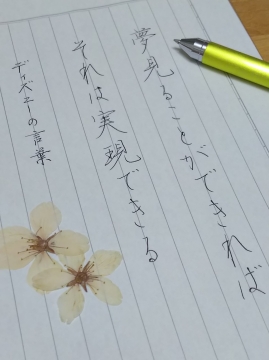 夢見ることができれば
それは実現できる
ディズニーの言葉